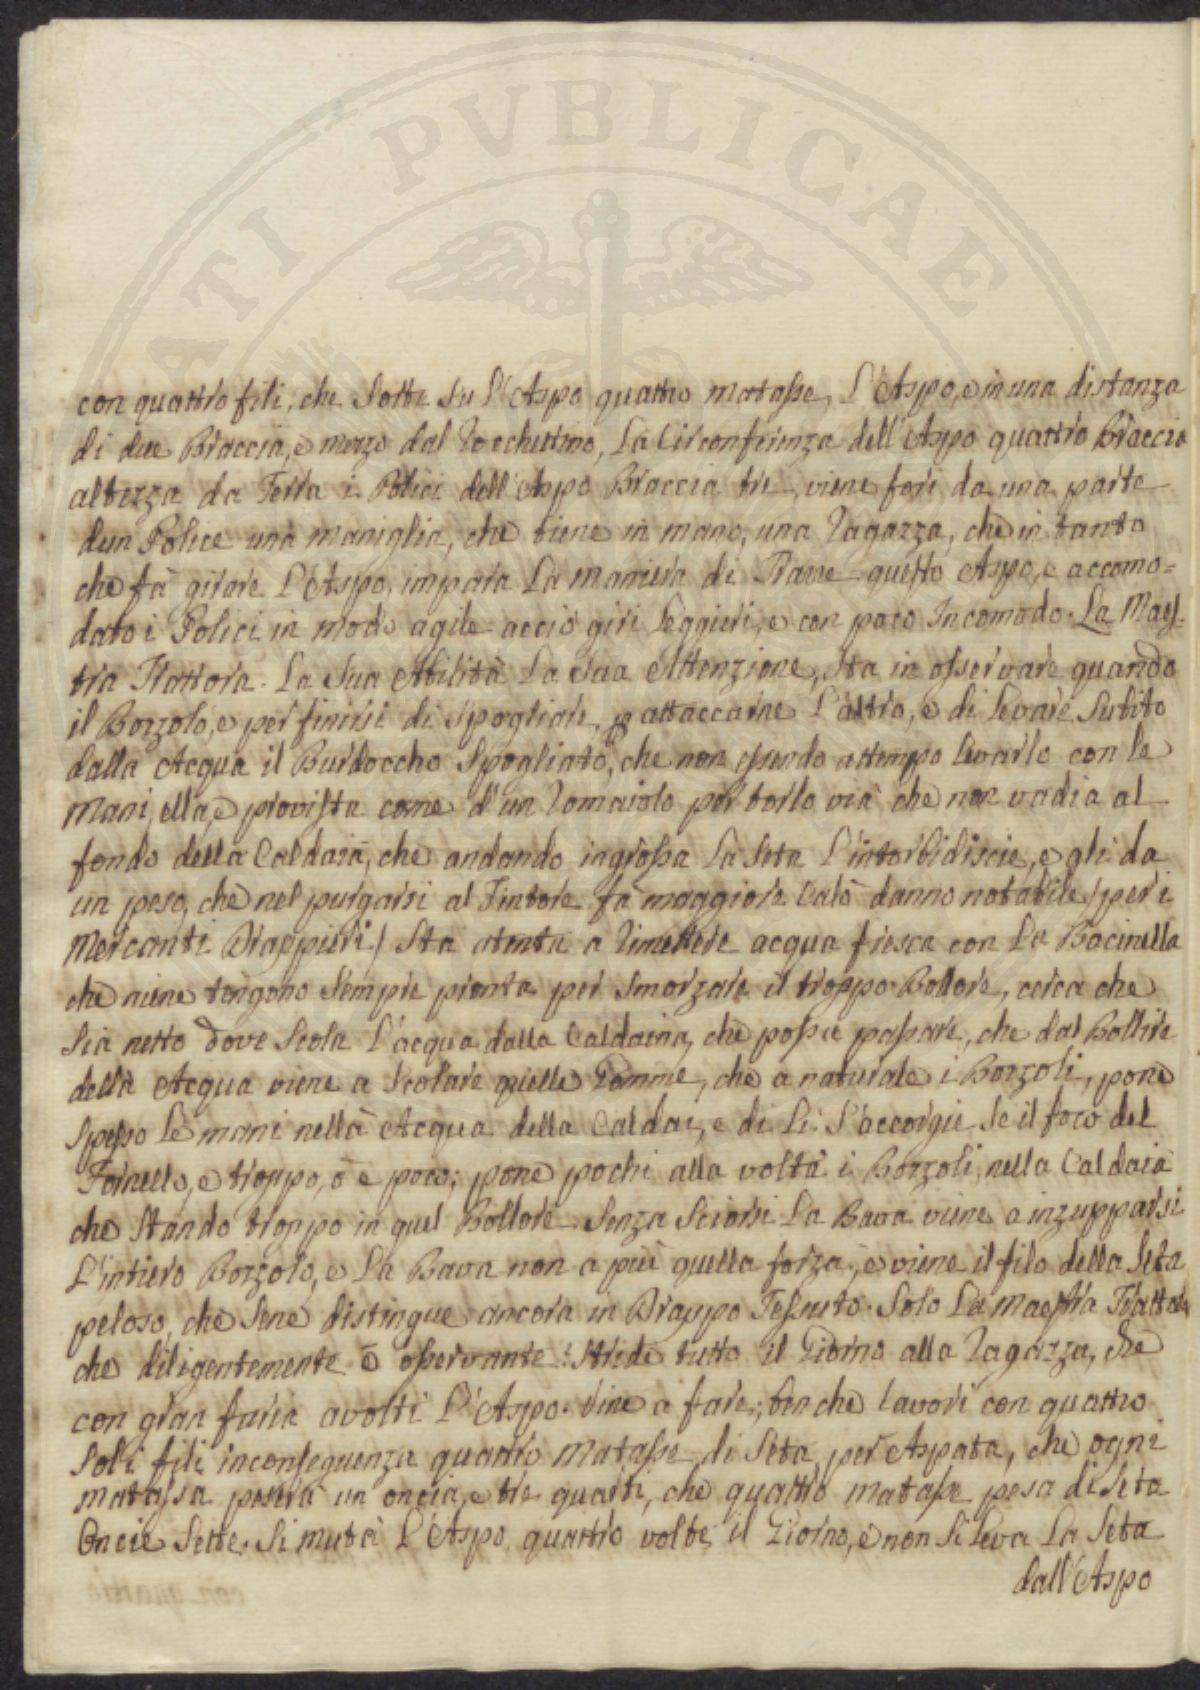 ATI PVBLICAE
con quattro fili, che sotte su l'Aspo quattro matasse, L'Aspo, e in una distanza
di due Braccia, e mezzo dal Rocchettino, La Circonferenza dell'Aspo quattro Braccia
altezza da Terra i Polici dell'Aspo Braccia tre, viene fori da una parte
dun Police una maniglia, che tiene in mano, una Ragazza, che in tanto
che fà girare L'Aspo, impara La maniera di Trarre questo Aspo, e accomo=
dato i Polici in modo agile acciò giri Leggieri, e con poco Incomodo. La Maes-
tra Trattora. La sua Abilità La sua Attenzione, sta in osservare quando
il Bozzolo, e per finirsi di spogliare, p attaccarne L'altro, e di levare subito
dalla Acqua il Burdoccho spogliato, che non essendo attempo levarlo con le
Mani, ella, e provista come d'un Romaiolo per torlo via che non vadia al
fondo della Caldaia, che andando ingrossa La seta L'intorbidiscie, e gli da
un peso, che nel purgarsi al Tintore fà maggiore Calo danno notabile per i
Mercanti Drappieri/ Stà atenta a Rimettere acqua fresca con La Bacinella
che niene tengono sempre pronta per smorzare il troppo Bollore, cerca che
sia netto dove scola L'acqua dalla Caldaina, che possa passare, che dal Bollire
della Acqua viene a scolare quelle Gomme, che a naturale i Bozzoli, pone
spesso le mani nella Acqua della Caldai, e di Li s'accorgie se il foco del
Fornello, e troppo, o è poco; pone pochi alla volta i Bozzoli, nella Caldaia
che stando troppo in quel Bollore senza sciorsi La Bava viene a inzupparsi
L'intiero Bozzolo, e La Bava non a più quella forza, e viene il filo della seta
peloso, che sene distingue ancora in Drappo Tessuto. Solo La maestra Trattora
che diligentemente è osservante stride tutto il Giorno alla Ragazza, che
con gran furia avolti L'Aspo. Vine a fare, ben che lavori con quattro
soli fili inconseguenza quattro matasse di seta per Aspata, che ogni
matassa peserà un oncia, e tre quarti, che quattro matasse pesa di seta
Oncie sette. Si muta L'Aspo quattro volte il Giorno, e non si leva La seta
dall'Aspo